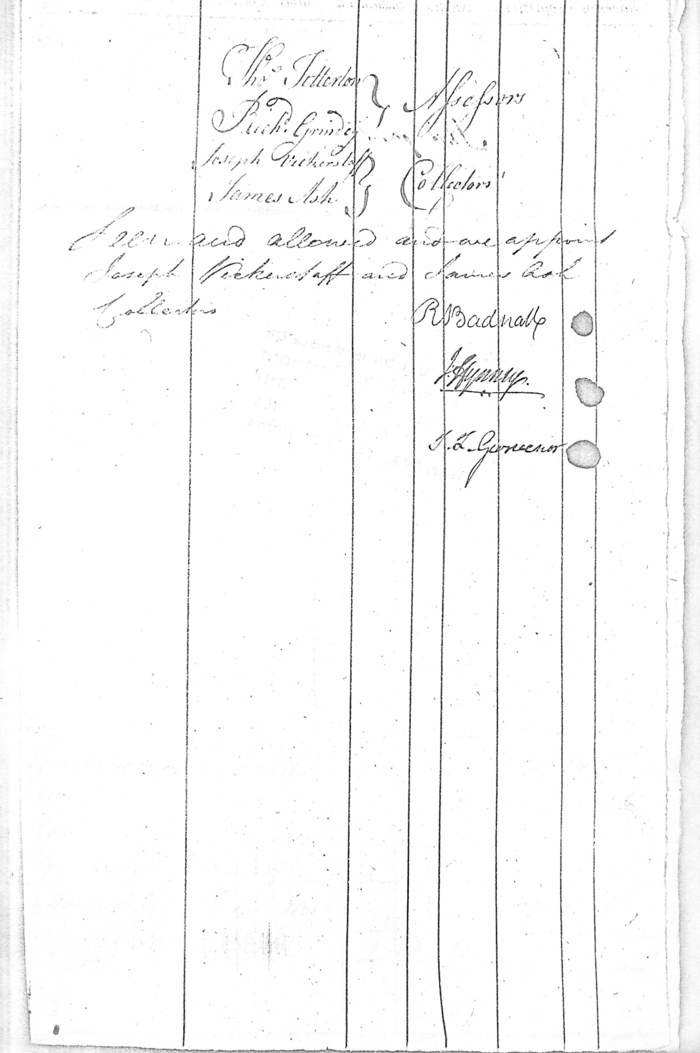 Thos. Tetterton } Assessors
Richd. Grindey
Joseph Vickerstaff } Collectors
James Ash
Seen and allowed and we appoint
Joseph Vickerstaff and James Ash
Collectors
R Badnall
J. L. Grosvenor